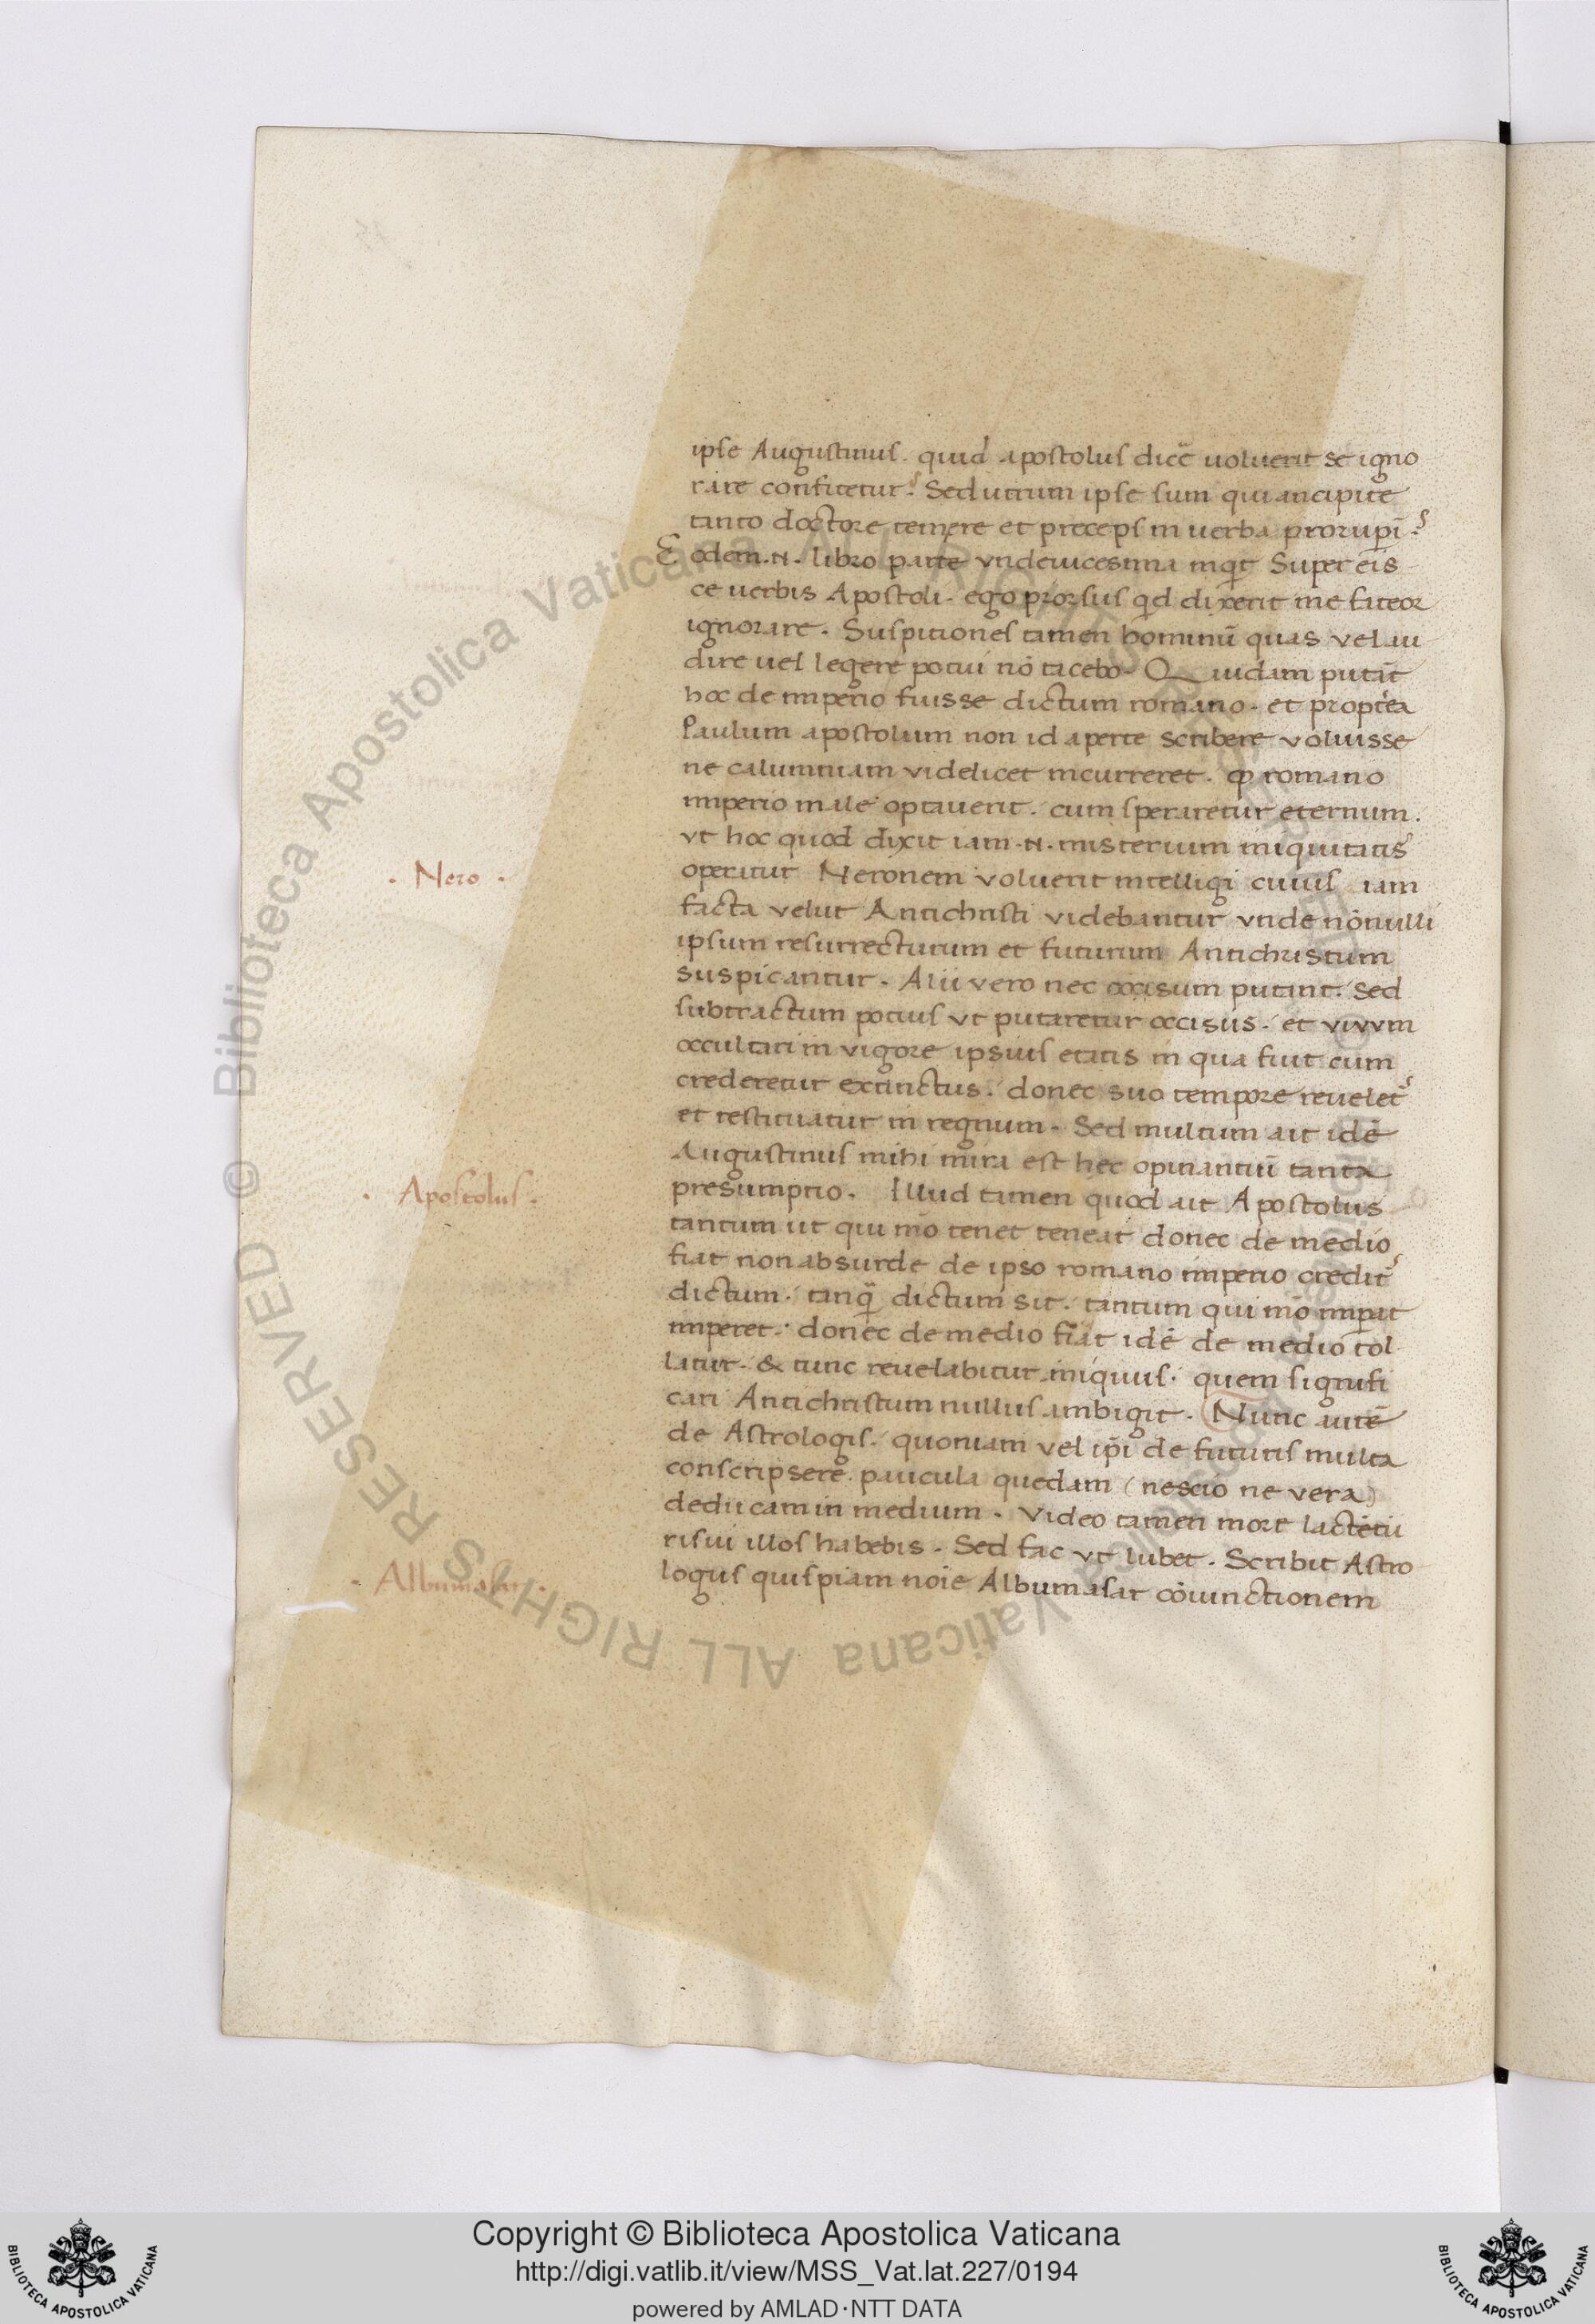 ipse Augustinus. quid apostolus dicē uoluerit se igno
rare confitetur. Sed utrum ipse sum qui ancipite
tanto doctore temere et preceps in uerba prorupī.
Eodem .n. libro parte vndeuicesima inqt Super eis
ce uerbis Apostoli. ego prorsus qd dixerit me fateor
ignorare. Suspitiones tamen hominū quas vel au
dire uel legere potui nō tacebo. Quidam putāt
hoc de imperio fuisse dictum romano. et proptea
Paulum apostolum non id aperte scribere voluisse
ne calumniam videlicet incurreret. ꝙ romano
imperio male optauerit. cum speraretur eternum.
vt hoc quod dixit iam .n. misterium iniquitatis
operatur Neronem voluerit intelligi cuius iam
facta velut Antichristi videbantur vnde nōnulli
ipsum resurrecturum et futurum Antichristum
suspicantur. Alii vero nec occisum putant. Sed
subtractum potius vt putaretur occisus. et vivvm
occultari in vigore ipsius etatis in qua fuit cum
crederetur extinctus. donec suo tempore reuelet
et restituatur in regnum. Sed multum ait idē
Augustinus mihi mira est hec opinantiū tanta
presumptio. Illud tamen quod ait Apostolus
tantum ut qui mō tenet teneat donec de medio
fiat non absurde de ipso romano imperio credit
dictum. tanq̄ dictum sit. tantum qui mō impat
imperet. donec de medio fiat idē de medio tol
latur. & tunc reuelabitur iniquus. quem signifi
cari Antichristum nullus ambigit. Nunc autē
de Astrologis. quoniam vel ipi de futuris multa
conscripsere. paucula quedam (nescio ne vera)
deducam in medium. Video tamen more lactētii
risui illos habebis. Sed fac vt lubet. Scribit Astro
logus quispiam noie Albumasar cōiunctionem
. Nero .
. Apostolus .
. Albumasar .
© Biblioteca Apostolica Vaticana ALL RIGHTS RESERVED
Copyright © Biblioteca Apostolica Vaticana
http://digi.vatlib.it/view/MSS_Vat.lat.227/0194
powered by AMLAD·NTT DATA
BIBLIOTECA APOSTOLICA VATICANA
BIBLIOTECA APOSTOLICA VATICANA